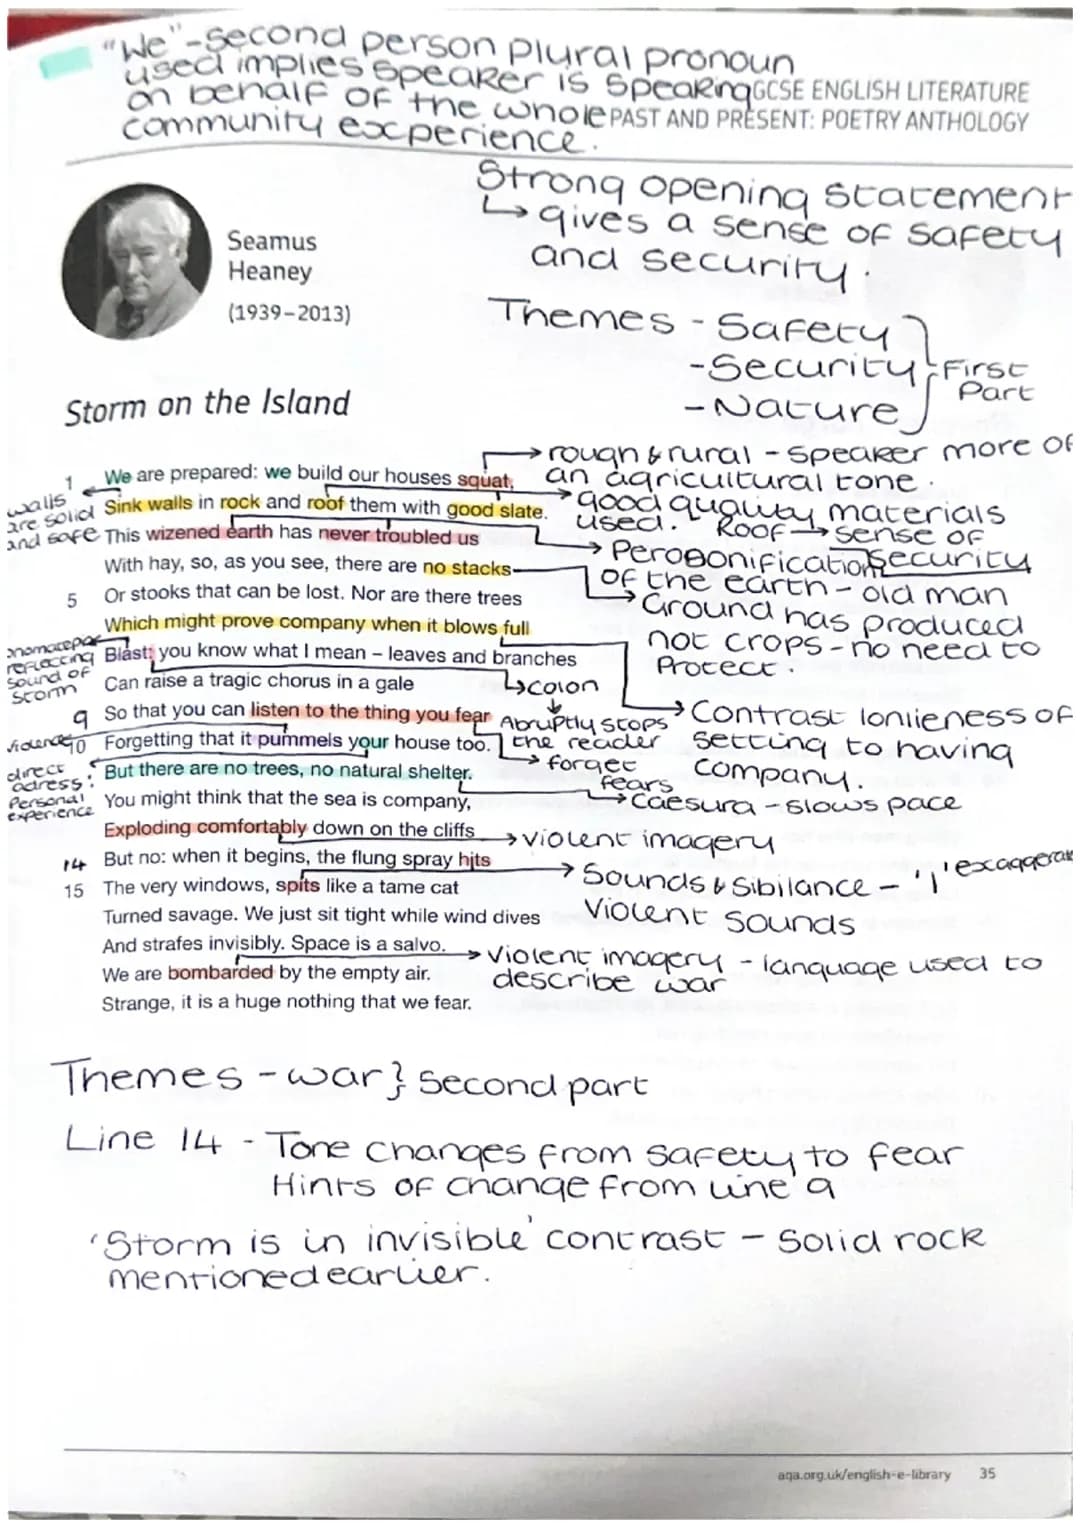 "We"-second person plural pronoun
used implies speaker is speaking
on behalf of the whole
community experience.
GCSE ENGLISH LITERATURE
PAST AND PRESENT: POETRY ANTHOLOGY
Strong opening statement
↳ gives a sense of safety
and security.
Seamus
Heaney
(1939–2013)
Themes - Safety
-Security
- Nature
First
Part
Storm on the Island
→ rough & rural - speaker more of
an agricultural tone.
→ good quality materials
used. Roof → sense of
security
→ Perosonification
of the earth - old man
→ Ground has produced
not crops - no need to
Protect.
walls
are solid
and safe
1 We are prepared: we build our houses squat,
Sink walls in rock and roof them with good slate.
This wizened earth has never troubled us
With hay, so, as you see, there are no stacks
5 Or stooks that can be lost. Nor are there trees
Which might prove company when it blows full
onomatopoe
reflecting
sound of
storm
Blast: you know what I mean – leaves and branches
Can raise a tragic chorus in a gale
↳ colon
↓
Abruptly stops
the reader
→ forget
fears
→ Contrast lonlieness of
setting to having
company.
9 So that you can listen to the thing you fear
violence
10 Forgetting that it pummels your house too.
direct
adress:
Personal
experience
But there are no trees, no natural shelter.
→ Caesura - slows pace
You might think that the sea is company,
Exploding comfortably down on the cliffs
→ violent imagery
14 But no: when it begins, the flung spray hits
→ Sounds & Sibilance - 'i' exaggerat
Violent sounds
15 The very windows, spits like a tame cat
Turned savage. We just sit tight while wind dives
And strafes invisibly. Space is a salvo.
→ Violent imagery - language used to
describe war
We are bombarded by the empty air.
Strange, it is a huge nothing that we fear.
Themes - war } Second part
Line 14 - Tone changes from safety to fear
Hints of change from line 9
'Storm is in invisible' contrast - Solid rock
mentioned earlier.
aqa.org.uk/english-e-library 35